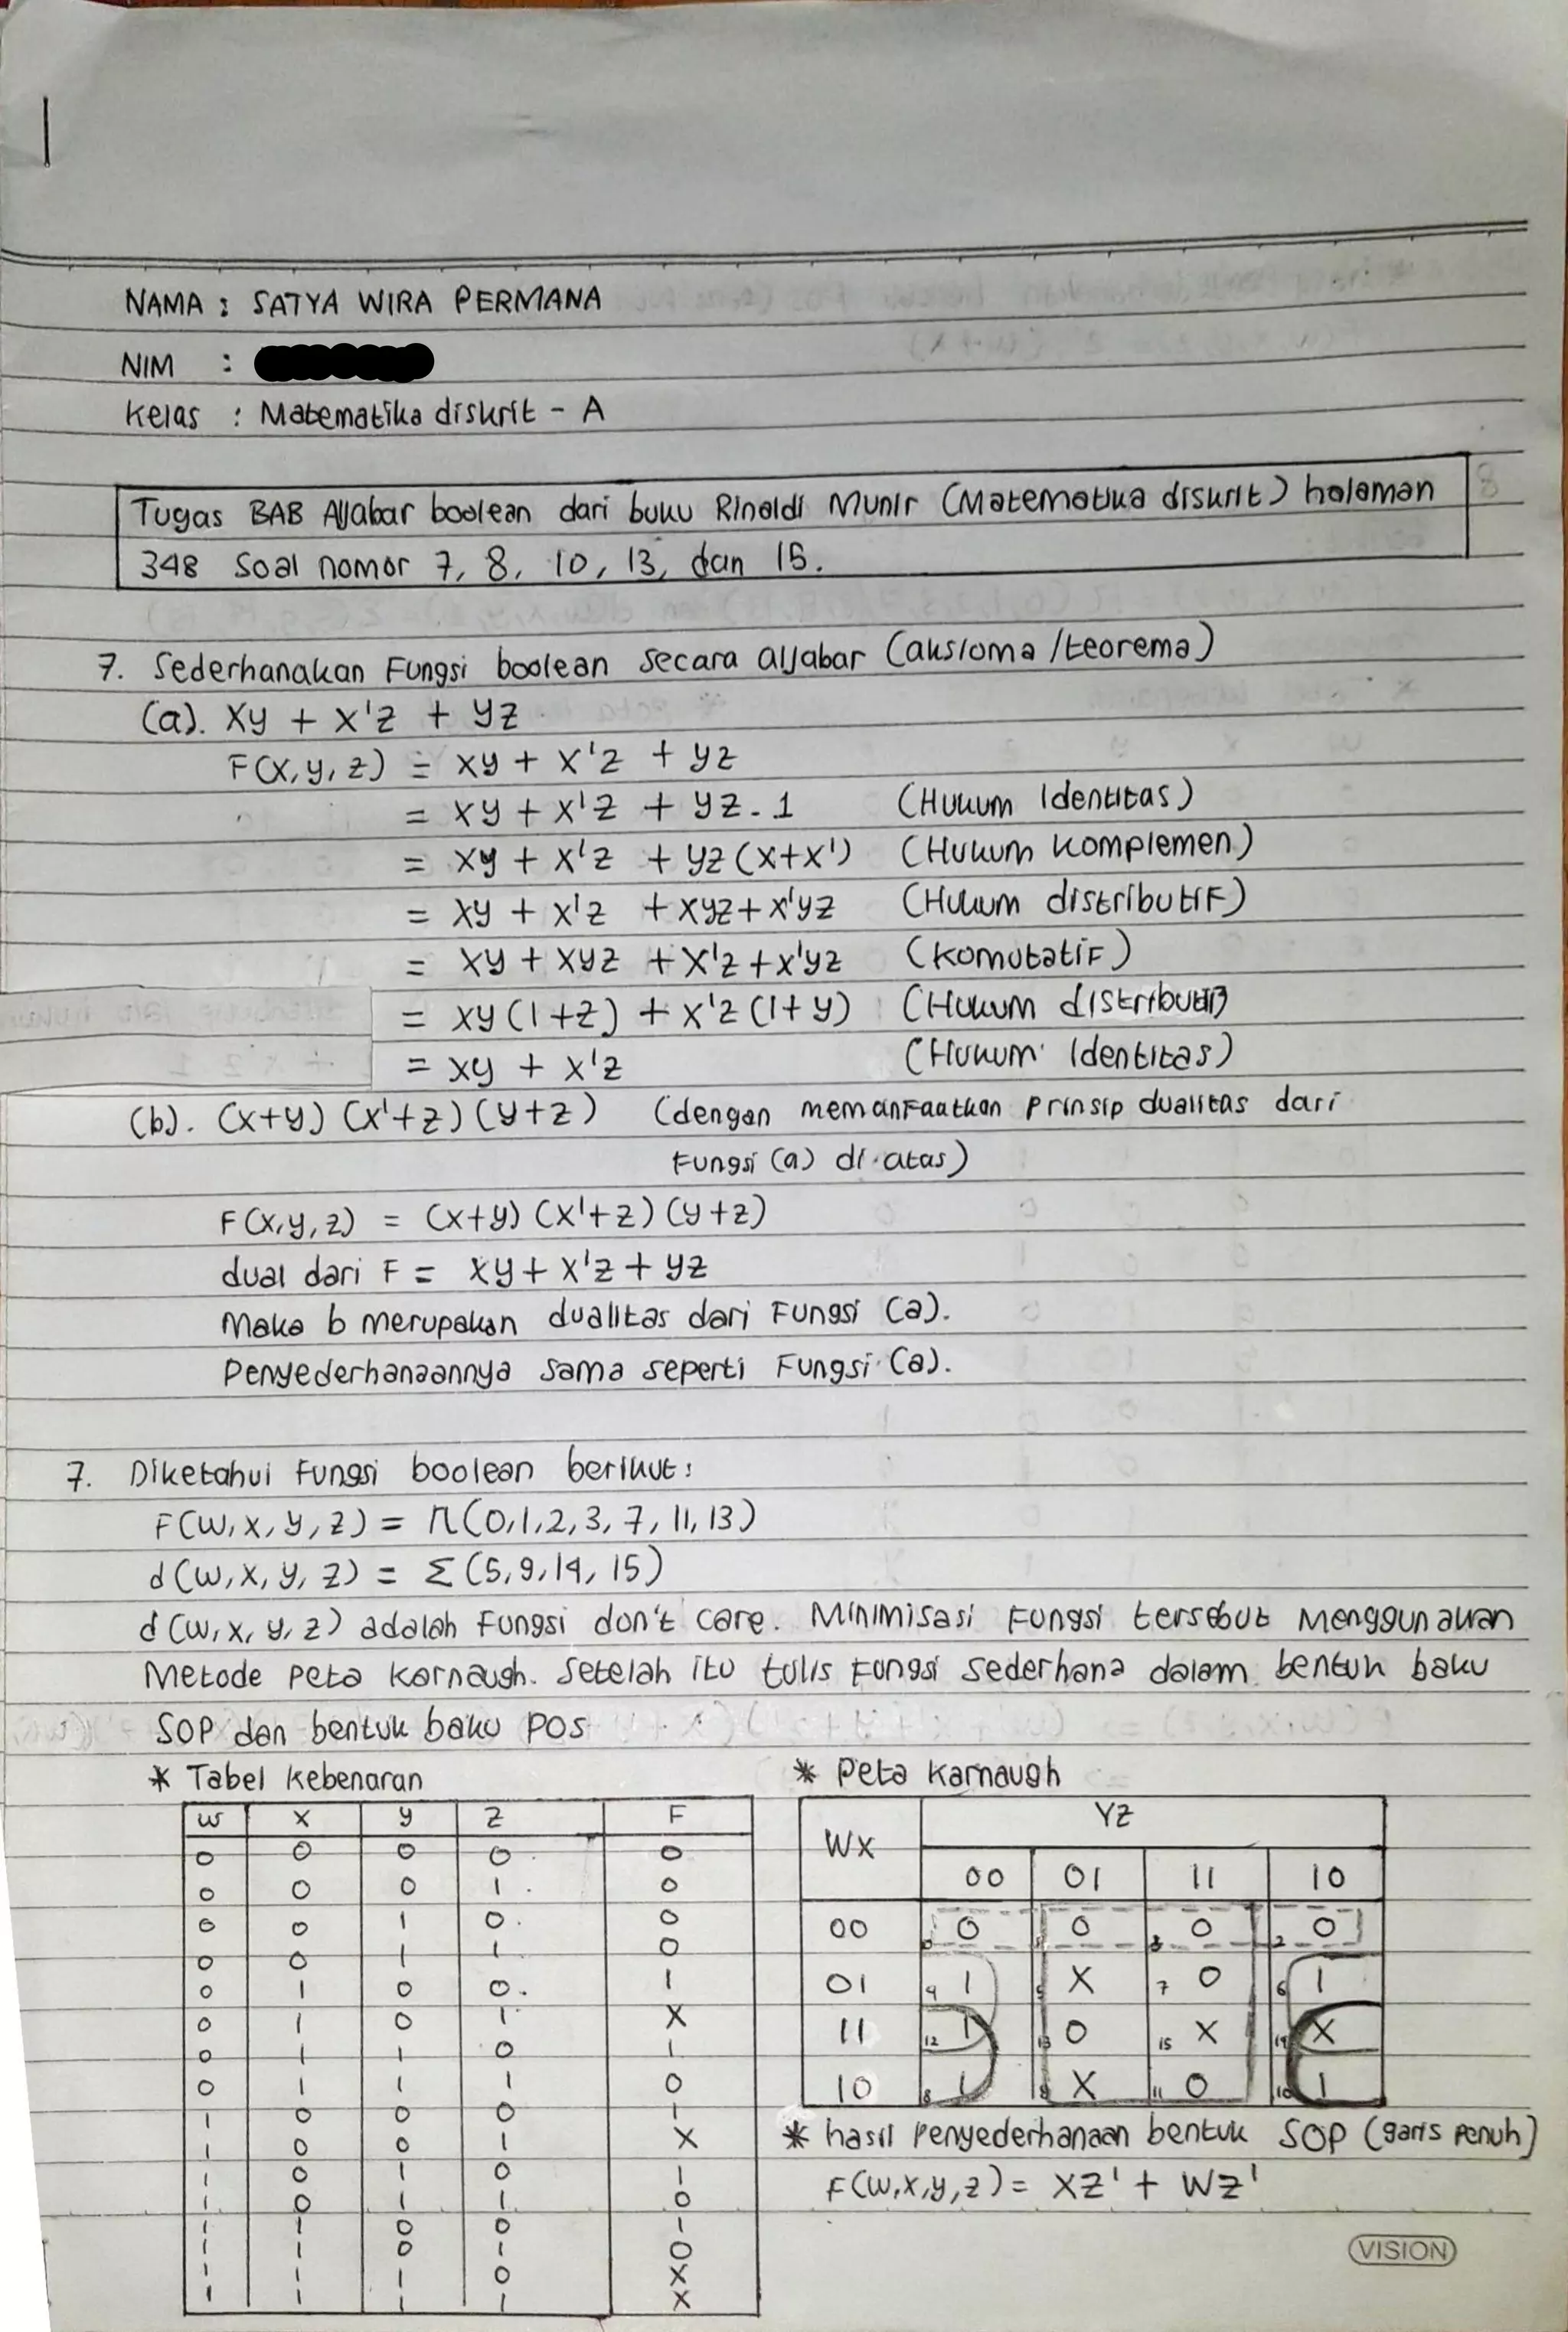 NAMA : SATYA WIRA PERMANA
NIM :
Kelas : Matematika diskrit - A
Tugas BAB Aljabar boolean dari buku Rinaldi Munir (Matematika diskrit) halaman
348 Soal nomor 7, 8, 10, 13, dan 15.
7. Sederhanakan Fungsi boolean secara aljabar (aksioma/teorema)
(a). xy + x'z + yz
F(x, y, z) = xy + x'z + yz
= xy + x'z + yz . 1 (Hukum Identitas)
= xy + x'z + yz (x+x') (Hukum Komplemen)
= xy + x'z + xyz + x'yz (Hukum distributif)
= xy + xyz + x'z + x'yz (komutatif)
= xy (1+z) + x'z (1+y) (Hukum distributif)
= xy + x'z (Hukum Identitas)
(b). (x+y) (x'+z) (y+z) (dengan memanfaatkan prinsip dualitas dari
Fungsi (a) di atas)
F(x, y, z) = (x+y) (x'+z) (y+z)
dual dari F = xy + x'z + yz
Maka b merupakan dualitas dari Fungsi (a).
Penyederhanaannya sama seperti Fungsi (a).
7. Diketahui Fungsi boolean berikut:
F(w, x, y, z) = Π(0,1,2,3,7,11,13)
d(w, x, y, z) = Σ(5,9,14,15)
d(w, x, y, z) adalah Fungsi don't care. Minimisasi Fungsi tersebut Menggunakan
Metode Peta Karnaugh. Setelah itu tulis Fungsi sederhana dalam bentuk baku
SOP dan bentuk baku POS
* Tabel kebenaran
w x y z F
0 0 0 0 0
0 0 0 1 0
0 0 1 0 0
0 0 1 1 0
0 1 0 0 1
0 1 0 1 X
0 1 1 0 1
0 1 1 1 0
1 0 0 0 1
1 0 0 1 X
1 0 1 0 1
1 0 1 1 0
1 1 0 0 1
1 1 0 1 0
1 1 1 0 X
1 1 1 1 X
* Peta Karnaugh
Wx YZ
00 01 11 10
00 0 0 0 1 3 0 2 0
01 4 1 5 X 7 0 6 1
11 12 1 13 0 15 X 14 X
10 8 1 9 X 11 0 10 1
* hasil Penyederhanaan bentuk SOP (garis Penuh)
F(w,x,y,z) = XZ' + WZ'
VISION